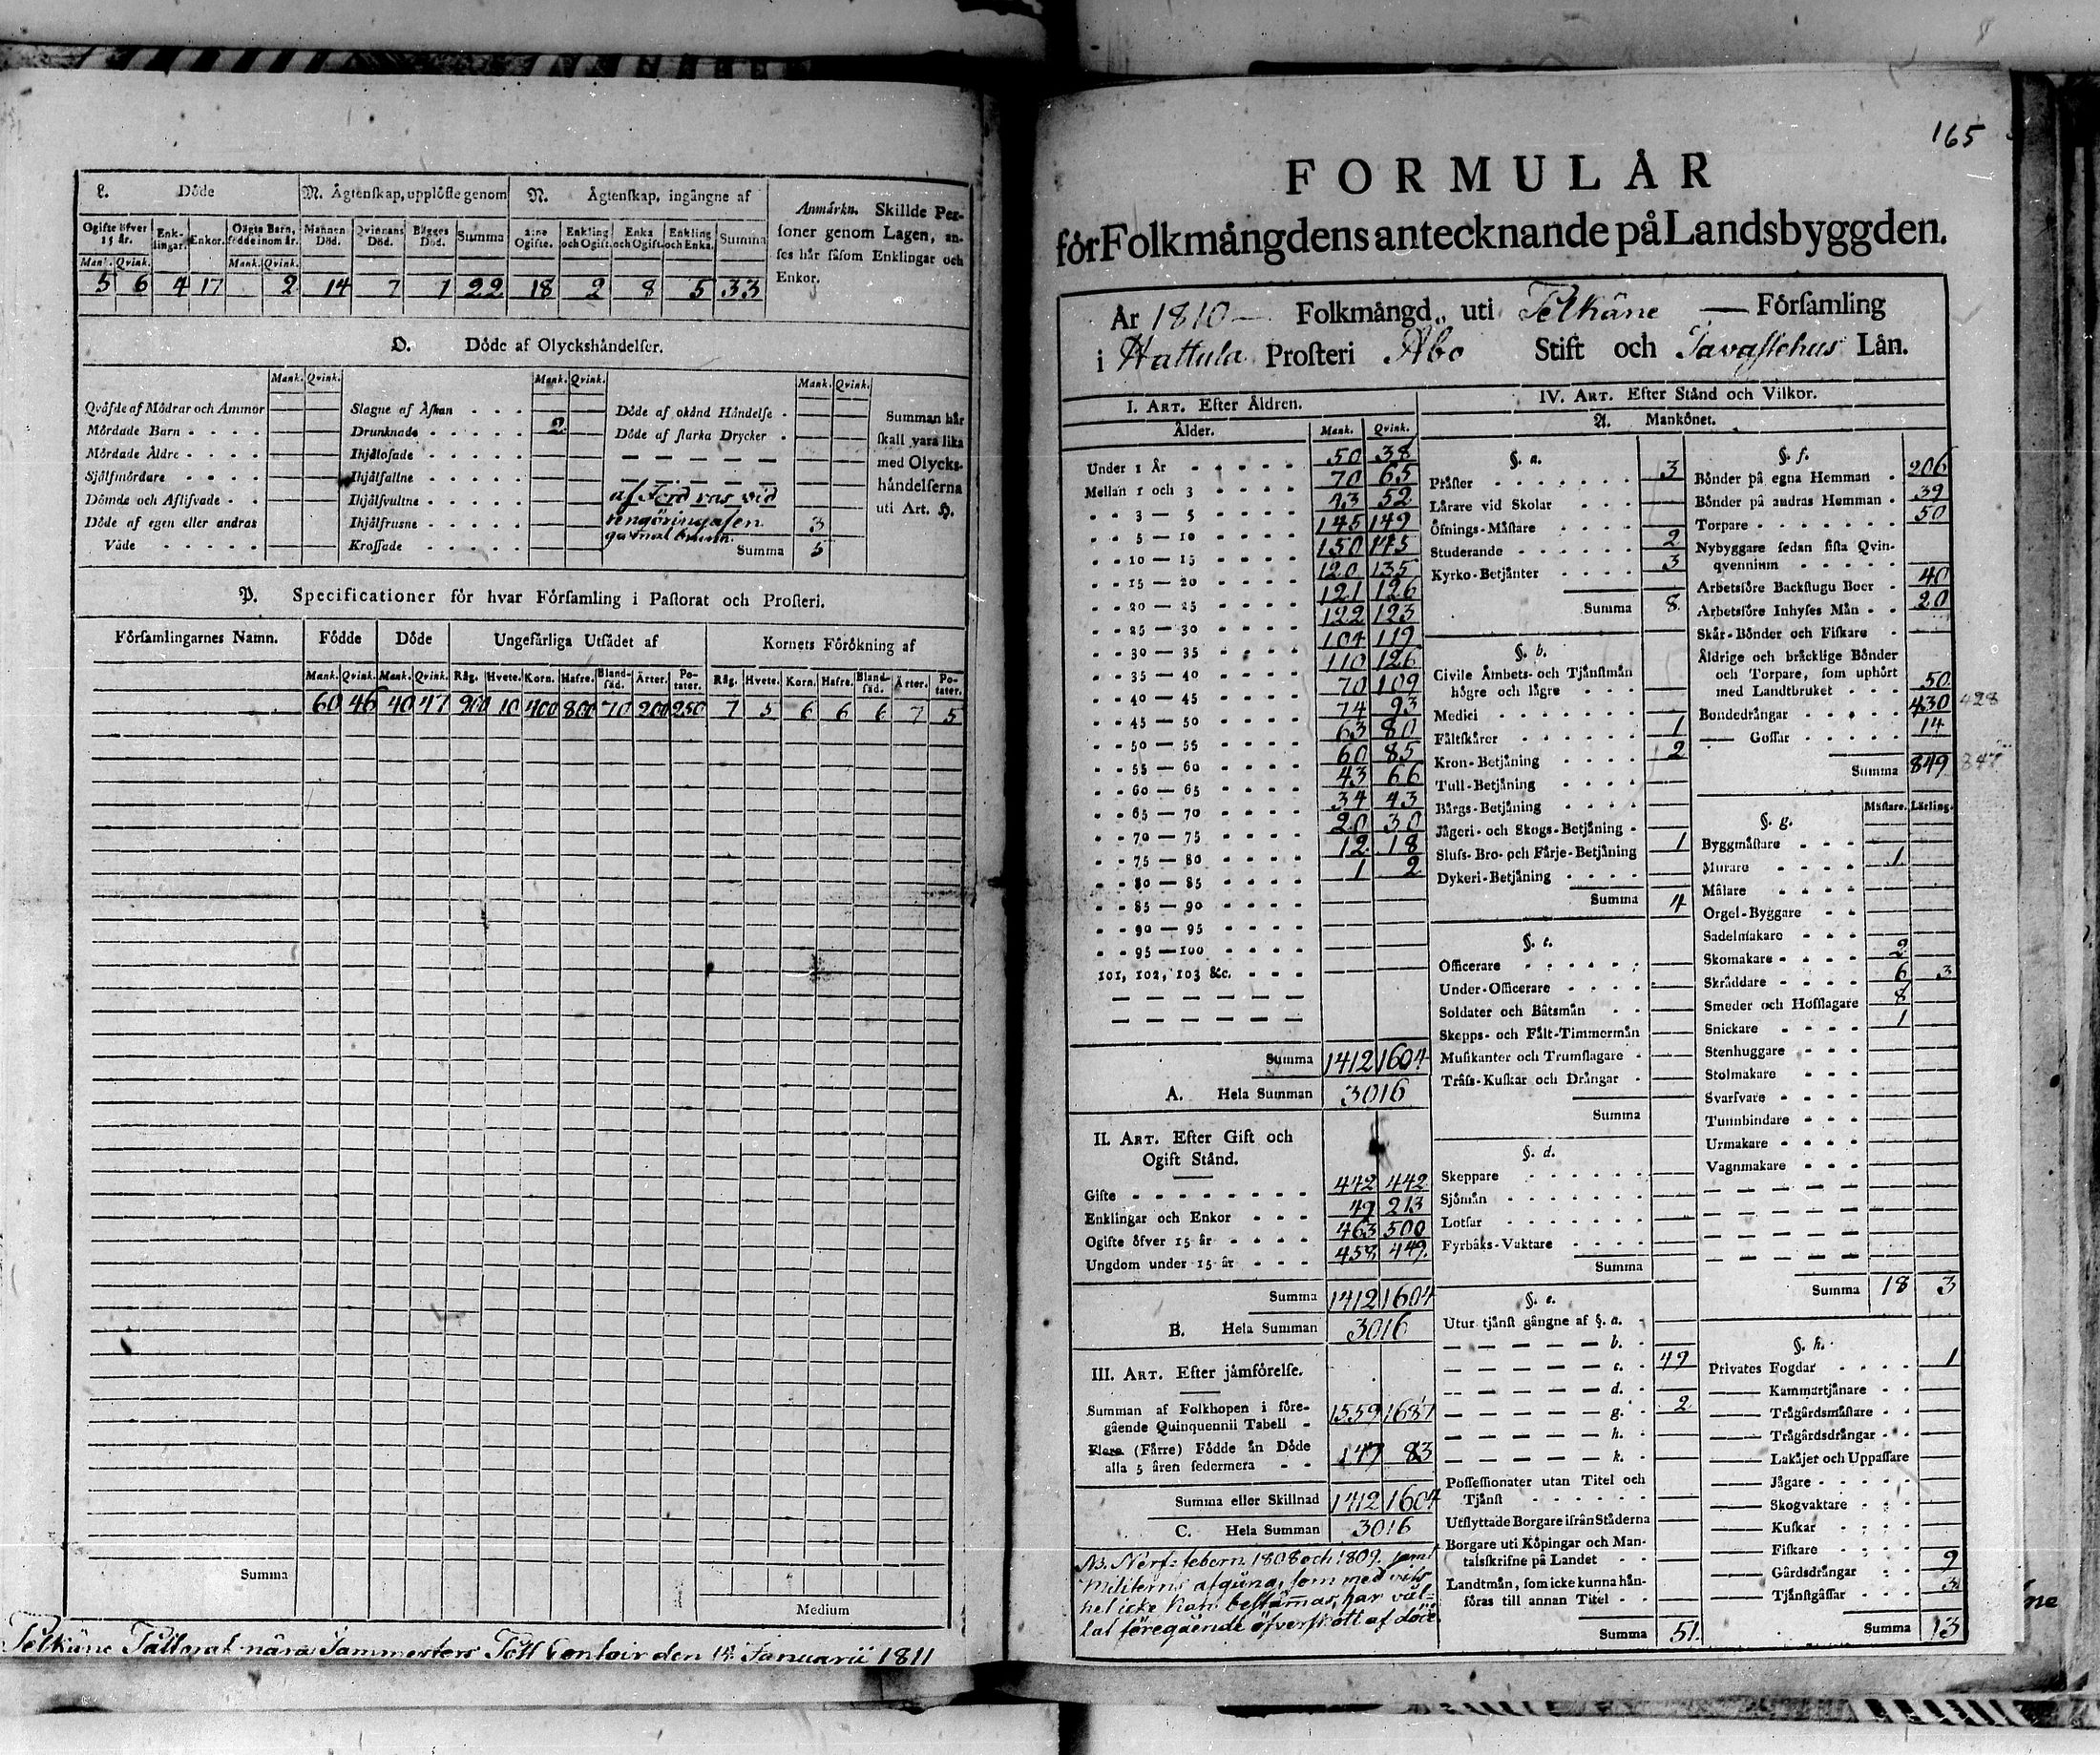 L. Döde
M. Ägtenskap, upplöste genom
N. Ägtenskap, ingångne af
Anmärkn. Skillde Personer genom Lagen, anses här såsom Enklingar och Enkor.
Ogifte öfver 15 år. Enklingar. Enkor. Oägta Barn, födde inom år. Mannen Död. Qvinnans Död. Bägges Död. Summa 2:ne Ogifte. Enkling och Ogift. Enka och Ogift. Enkling och Enka. Summa
Mank. Qvink. Mank. Qvink.
5 6 4 17 2 14 7 1 22 18 2 8 5 33
O. Döde af Olyckshändelser.
Mank. Qvink. Mank. Qvink. Mank. Qvink.
Qväfde af Mödrar och Ammor
Mördade Barn
Mördade Äldre
Sjålfmördare
Dömde och Aflifvade
Döde af egen eller andras
Våde
Slagne af Åskan
Drunknade 2
Ihjälosade
Ihjälfallne
Ihjälsvultne
Ihjälfrusne
Krossade
Döde af okänd Händelse
Döde af starka Drycker
af Jord ras vid
rengöringen af en
gammal brunn. 3
Summa 5
Summan här
skall vara lika
med Olycks-
händelserna
uti Art. H.
P. Specificationer för hvar Församling i Pastorat och Prosteri.
Församlingarnes Namn. Födde Döde Ungefärliga Utsädet af Kornets Förökning af
Mank. Qvink. Mank. Qvink. Råg. Hvete. Korn. Hafre. Blandsäd. Ärter. Potater. Råg. Hvete. Korn. Hafre. Blandsäd. Ärter. Potater.
60 46 40 47 900 10 400 800 70 200 250 7 5 6 6 6 7 5
Summa
Medium
Pelkäne Pastorat nära Tammerfors Post Contoir den 14 Januarii 1811
165
FORMULÄR
för Folkmängdens antecknande på Landsbyggden.
År 1810 — Folkmängd uti Pelkäne — Församling
i Hattula Prosteri Åbo Stift och Tavastehus Län.
I. Art. Efter Åldren.
Ålder. Mank. Qvink.
Under 1 År 50 38
Mellan 1 och 3 70 65
3 — 5 43 52
5 — 10 145 149
10 — 15 150 145
15 — 20 120 135
20 — 25 121 126
25 — 30 122 123
30 — 35 104 119
35 — 40 110 126
40 — 45 70 109
45 — 50 74 93
50 — 55 63 80
55 — 60 60 85
60 — 65 43 66
65 — 70 34 43
70 — 75 20 30
75 — 80 12 18
80 — 85 1 2
85 — 90
90 — 95
95 — 100
101, 102, 103 &c.
Summa 1412 1604
A. Hela Summan 3016
II. Art. Efter Gift och
Ogift Stånd.
Gifte 442 442
Enklingar och Enkor 49 213
Ogifte öfver 15 år 463 500
Ungdom under 15 år 458 449
Summa 1412 1604
B. Hela Summan 3016
III. Art. Efter jämförelse.
Summan af Folkhopen i föregående Quinquennii Tabell 1559 1687
Flere (Färre) Födde än Döde
alla 5 åren sedermera 147 83
Summa eller Skillnad 1412 1604
C. Hela Summan 3016
NB. 1808 och 1809. samt
Militerns afgång, som med viss
het icke kan bestämmas, har vål-
lat föregående öfverskott af döde
IV. Art. Efter Stånd och Vilkor.
A. Mankönet.
§. a.
Präster 3
Lärare vid Skolar
Öfnings-Mästare
Studerande 2
Kyrko-Betjänter 3
Summa 8
§. b.
Civile Ämbets- och Tjänstmän
högre och lägre
Medici
Fältskärer 1
Kron-Betjäning 2
Tull-Betjäning
Bärgs-Betjäning
Jägeri- och Skogs-Betjäning
Sluss- Bro- och Färje-Betjäning 1
Dykeri-Betjäning
Summa 4
§. c.
Officerare
Under-Officerare
Soldater och Båtsmän
Skepps- och Fält-Timmermän
Musikanter och Trumslagare
Träss-Kuskar och Drängar
Summa
§. d.
Skeppare
Sjömän
Lotsar
Fyrbåks-Vaktare
Summa
§. e.
Utur tjänst gångne af §. a.
b.
c. 49
d.
g. 2
h.
k.
Possessionater utan Titel och
Tjänst
Utflyttade Borgare ifrån Städerna
Borgare uti Köpingar och Man-
talsskrifne på Landet
Landtmän, som icke kunna hän-
föras till annan Titel
Summa 51.
§. f.
Bönder på egna Hemman 206
Bönder på andras Hemman 39
Torpare 50
Nybyggare sedan sista Qvin-
qvennium
Arbetsföre Backstugu Boer 40
Arbetsföre Inhyses Män 20
Skär-Bönder och Fiskare
Äldrige och bräcklige Bönder
och Torpare, som uphört
med Landtbruket 50
Bondedrängar 430 428
Gossar 14
Summa 849 847
Mästare. Lärling.
§. g.
Byggmästare
Murare 1
Målare
Orgel-Byggare
Sadelmakare
Skomakare 2
Skräddare 6 3
Smeder och Hofslagare 8
Snickare 1
Stenhuggare
Stolmakare
Svarfvare
Tunnbindare
Urmakare
Vagnmakare
Summa 18 3
§. h.
Privates Fogdar 1
Kammartjänare
Trägårdsmästare
Trägårdsdrängar
Lakäjer och Uppassare
Jägare
Skogvaktare
Kuskar
Fiskare
Gårdsdrängar 9
Tjänstgåssar 3
Summa 13